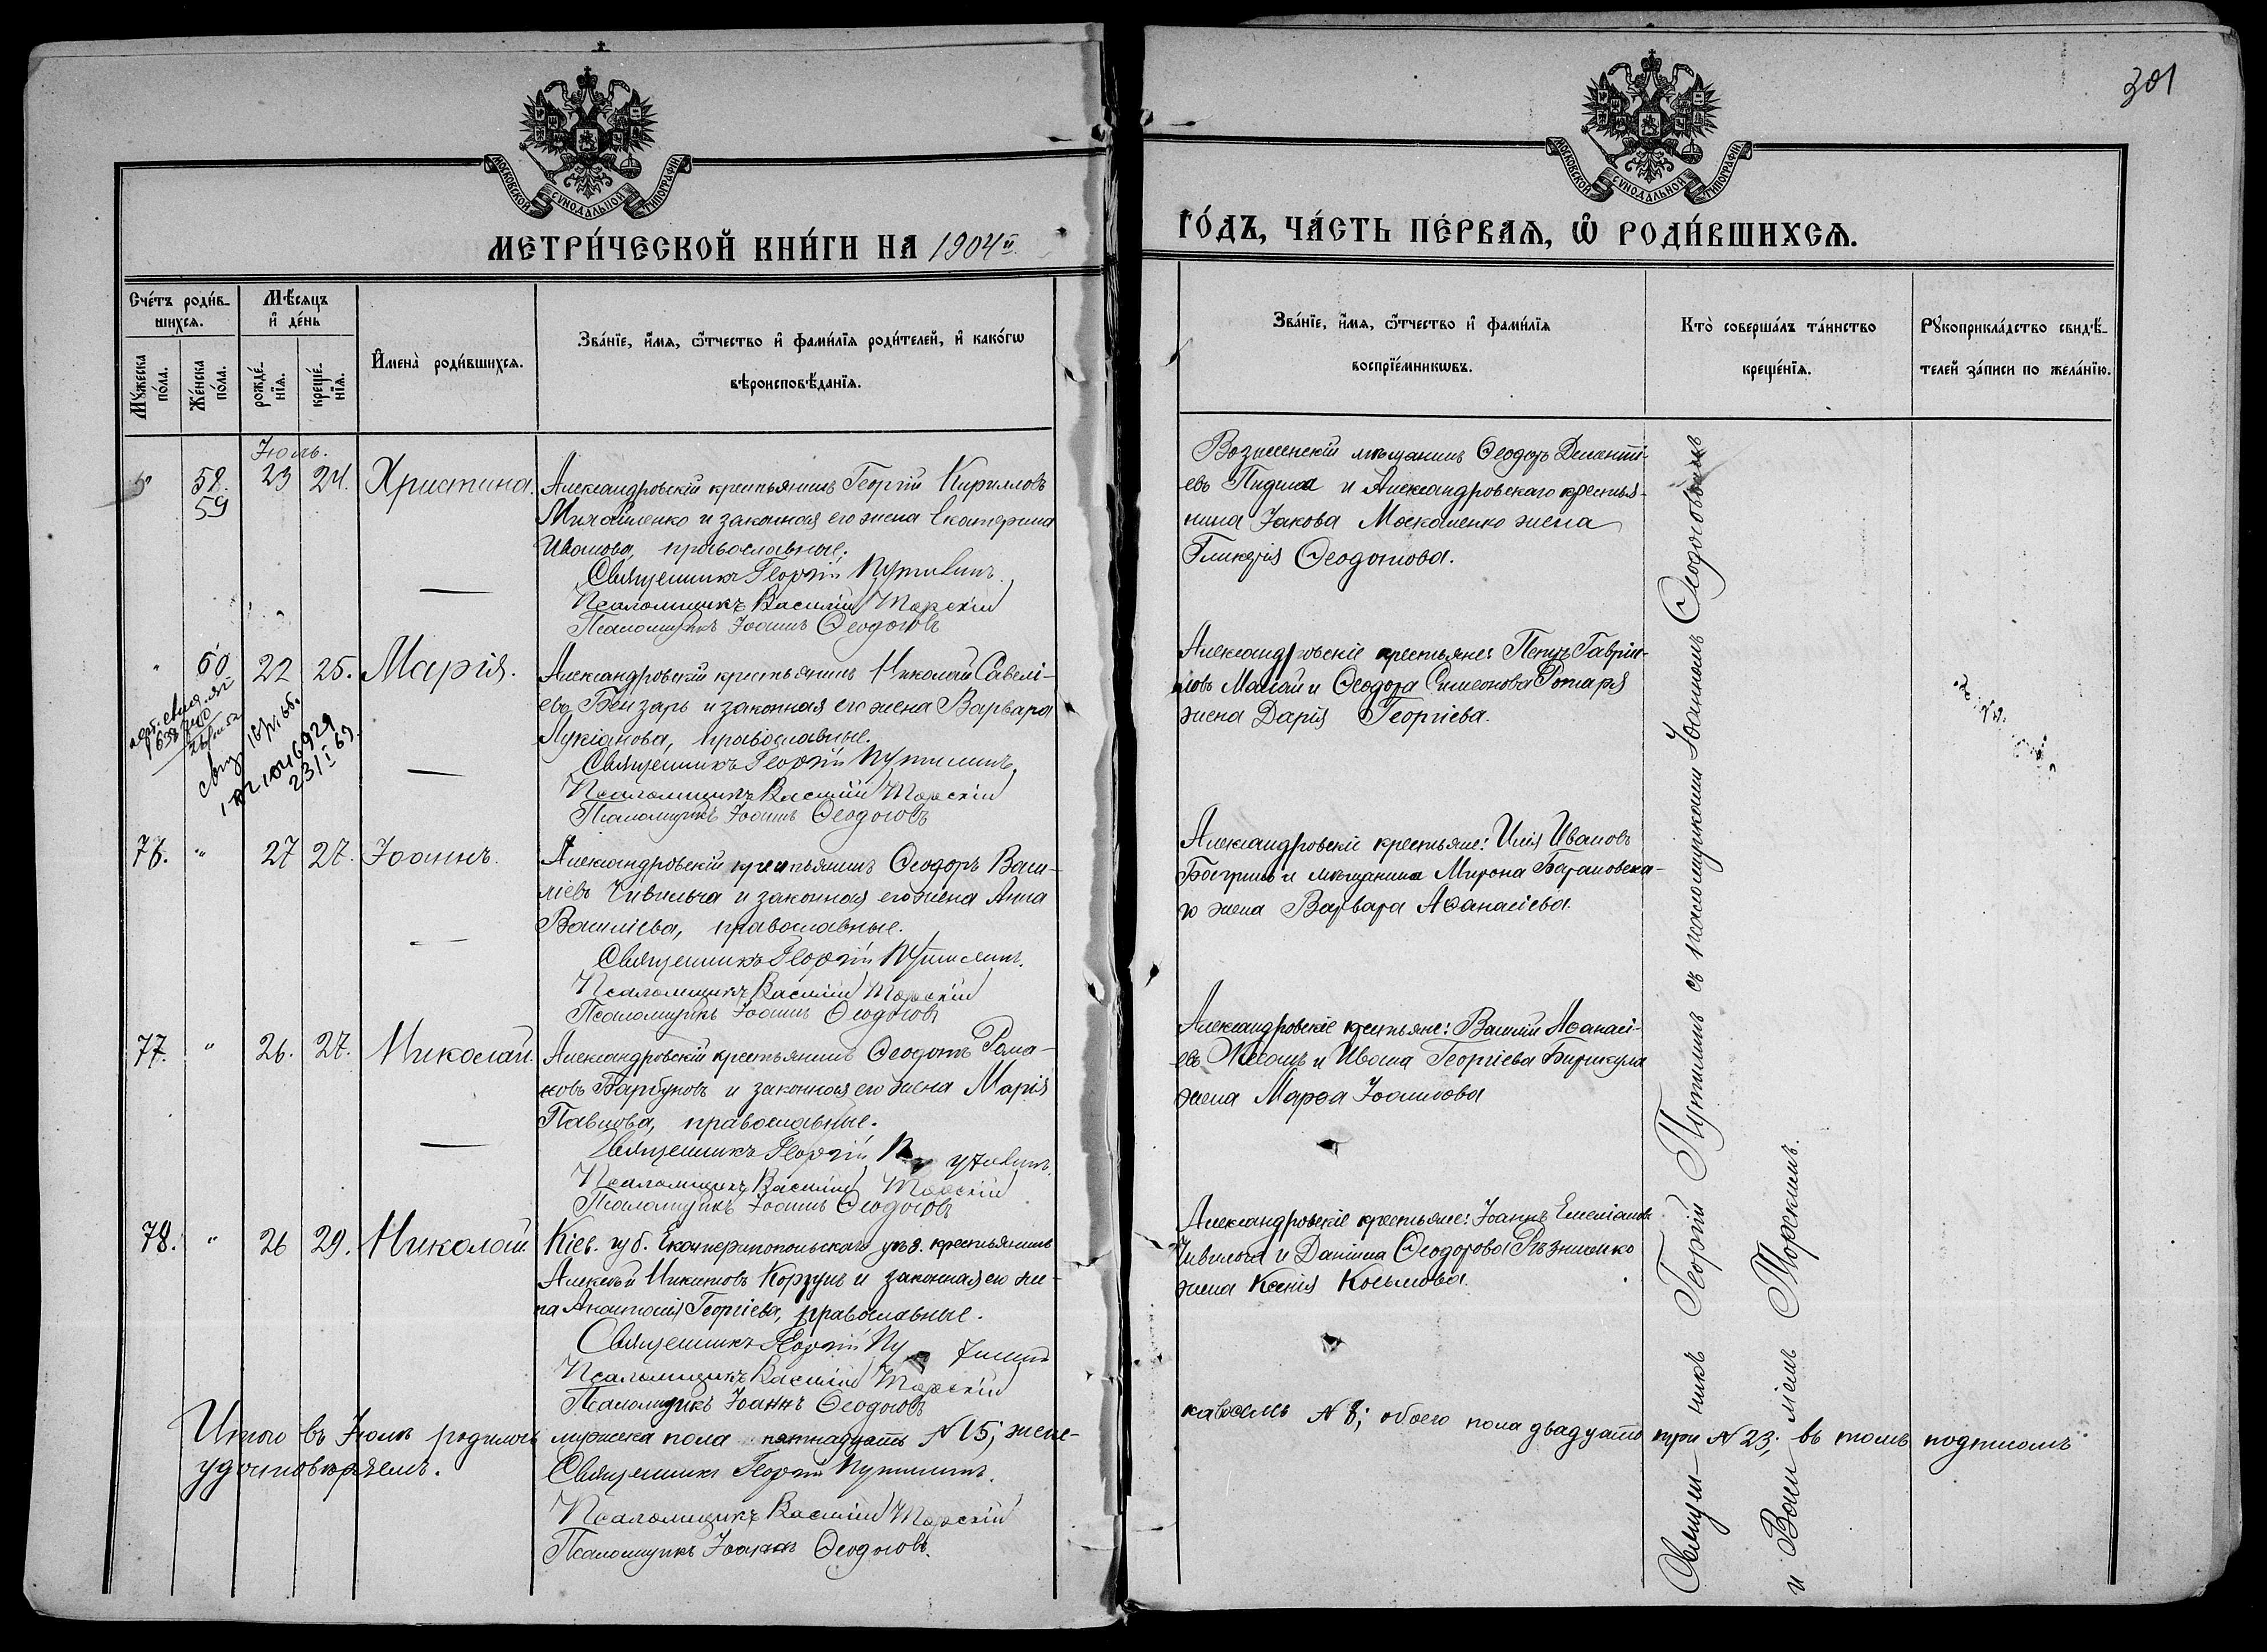 301
МОСКОВСКОЙ СѴНОДАЛЬНОЙ ТИПОГРАФІИ
МОСКОВСКОЙ СѴНОДАЛЬНОЙ ТИПОГРАФІИ
МЕТРИ́ЧЕСКОЙ КНИ́ГИ НА 1904й
ГО́ДЪ, ЧА́СТЬ ПЕ́РВАѦ, Ѡ РОДИ́ВШИХСѦ.
Сче́тъ роди́в-
шихсѧ.
Мꙋ́жеска по́ла.
Же́нска по́ла.
Мѣ́сѧцъ и҆ де́нь
рожде́-
нїѧ.
креще́-
нїѧ.
И҆мена̀ роди́вшихсѧ.
Зва́нїе, и҆́мѧ, ѻ҆́тчество и҆ фами́лїѧ роди́телей, и҆ како́гѡ
вѣроисповѣ́данїѧ.
Зва́нїе, и҆́мѧ, ѻ҆́тчество и҆ фами́лїѧ
воспрїе́мникѡвъ.
Кто̀ соверша́лъ та́инство
креще́нїѧ.
Рꙋкоприкла́дство свидѣ́-
телей за́писи по жела́нїю.
Іюль.
" 58. 23 24. Христина. Александровскій крестьянинъ Георгій Кирилловъ
59
Михайленко и законная его жена Екатерина
Иванова, православные.
Священникъ Георгій Путилинъ.
Псаломщикъ Василій Марскій
Псаломщикъ Іоаннъ Ѳеодоговъ
Вознесенскій мѣщанинъ Ѳеодоръ Дементі-
евъ и Александровскаго крестья-
нина Іакова Москаленко жена
Гликерія Ѳеодотова.
" 60 22 25. Марія. Александровскій крестьянинъ Николай Савелі-
евъ Бензарь и законная его жена Варвара
Лукіанова, православные.
Священникъ Георгій Путилинъ.
Псаломщикъ Василій Марскій
Псаломщикъ Іоаннъ Ѳеодоговъ
1046929
23/I 69.
Александровскіе крестьяне: Петръ Гаврии-
ловъ Малай и Ѳеодора Симеонова Ротаря
жена Дарія Георгіева.
76. " 27 27. Іоаннъ. Александровскій крестьянинъ Ѳеодоръ Васи-
ліевъ Чивильча и законная его жена Анна
Василіева, православные.
Священникъ Георгій Путилинъ.
Псаломщикъ Василій Марскій
Псаломщикъ Іоаннъ Ѳеодоговъ
Александровскіе крестьяне: Илія Ивановъ
Багринъ и мѣщанина Мирона Барановска-
го жена Варвара Аѳанасіева.
77. " 26. 27. Николай. Александровскій крестьянинъ Ѳеодотъ Рома-
новъ Барбуновъ и законная его жена Марія
Павлова, православные.
Священникъ Георгій Путилинъ.
Псаломщикъ Василій Марскій
Псаломщикъ Іоаннъ Ѳеодоговъ
Александровскіе крестьяне: Василій Аѳанасі-
евъ и Ивана Георгіева
жена Марѳа Іоаннова
78. " 26 29. Николай. Кіев. губ. Екатеринопольскаго уѣз. крестьянинъ
Алексѣй Никитовъ Корзунъ и законная его же-
на Анастасія Георгіева, православные.
Священникъ Георгій Путилинъ
Псаломщикъ Василій Марскій
Псаломщикъ Іоаннъ Ѳеодоговъ
Александровскіе крестьяне: Іоаннъ Емеліановъ
Чивильча и Даніила Ѳеодорова Рѣзниченко
жена Ксенія Косьмова.
Священникъ Георгій Путилинъ съ псаломщиками Іоанномъ Ѳеодоговымъ
и Василіемъ Марскимъ.
Итого въ Іюлѣ родилось мужеска пола пятнадцать № 15; жен-
скаго восемь № 8; обоего пола двадцать три № 23; въ томъ подписомъ
удостовѣряемъ.
Священникъ Георгій Путилинъ.
Псаломщикъ Василій Марскій
Псаломщикъ Іоаннъ Ѳеодоговъ.